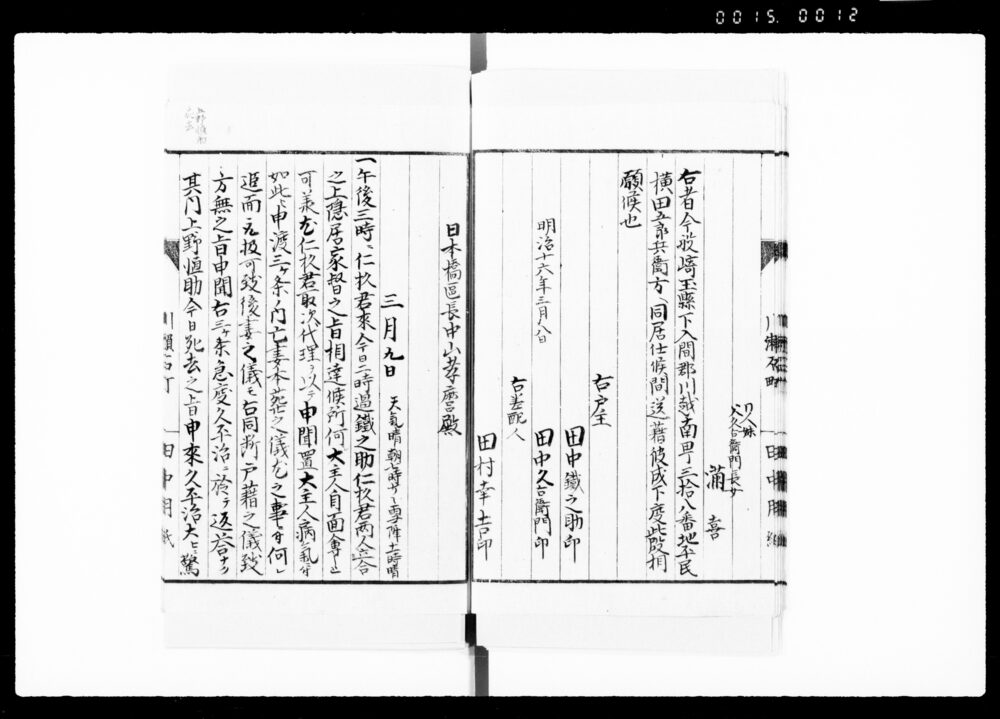 0015. 0012
川瀬石町
田中用紙
同人妹
父久右衛門長女
満喜
右者今般埼玉縣下入間郡川越南町三拾八番地平民
横田五郎兵衛方へ同居仕候間送藉被成下度此段相
願候也
右戸主
田中鐵之助印
田中久右衛門印
明治十六年三月八日
右差配人
田村幸吉印
日本橋區長中山孝麿殿
三月九日 天氣晴朝七時
一午後三時ニ仁杦君來今日二時過鐵之助仁杦君両人立合
之上隠居家督之旨相達候所何大主人自面會
可義尤仁杦君取次代理ヲ以テ申聞置大主人病氣
如此申渡三ヶ条ノ内亡妻本葬之儀尤之事
追而可致後妻之儀モ右同断戸藉之儀致
方無之旨申聞右三ヶ条急度久平治ニ於テ返答
其内上野恒助今日死去之旨申來久平治大ヒニ驚
川瀬石町
田中用紙